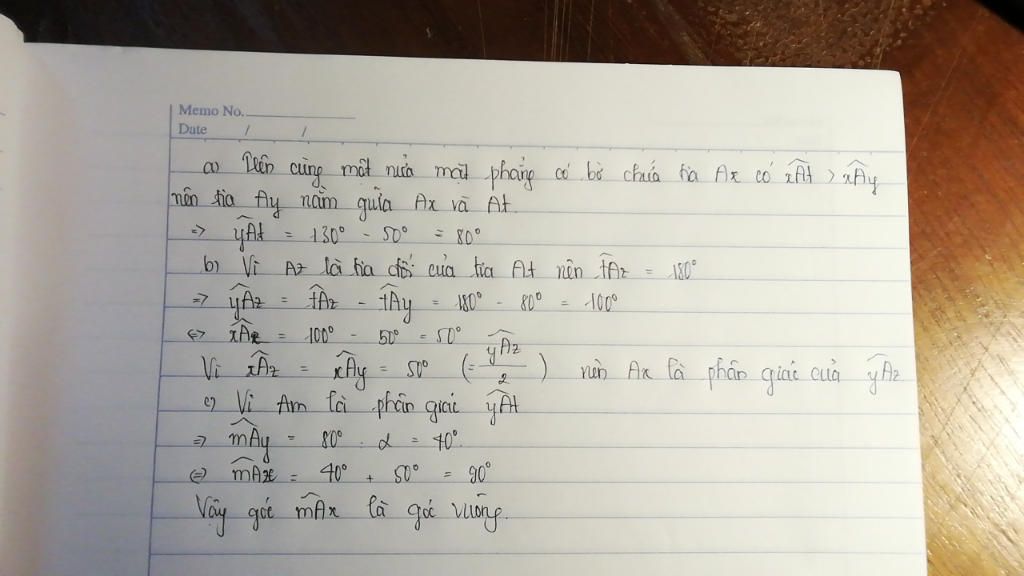 Memo No.
Date / /
a) Trên cùng một nửa mặt phẳng có bờ chứa tia Ax có xAt > xAy
nên tia Ay nằm giữa Ax và At.
=> yAt = 130° - 50° = 80°
b) Vì Az là tia đối của tia At nên tAz = 180°
=> yAz = tAz - tAy = 180° - 80° = 100°
<=> xAz = 100° - 50° = 50°
Vì xAz = xAy = 50° (= yAz / 2) nên Ax là phân giác của yAz
c) Vì Am là phân giác yAt
=> mAy = 80° : 2 = 40°.
<=> mAx = 40° + 50° = 90°
Vậy góc mAx là góc vuông.